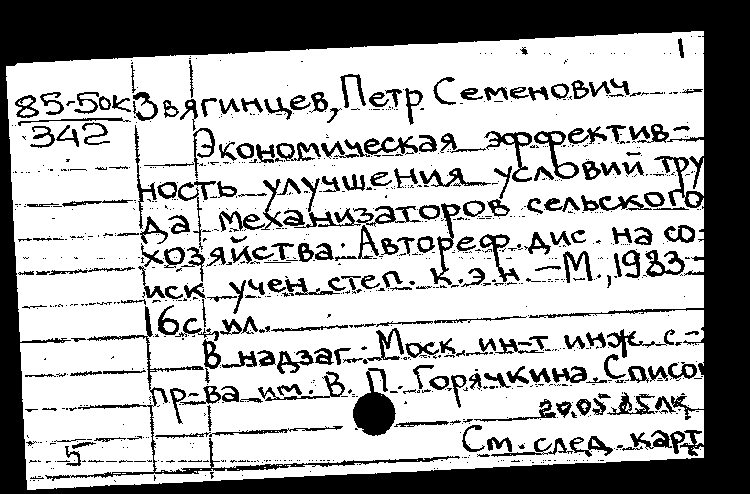 1
85-50к Звягинцев, Петр Семенович
342
Экономическая эффектив-
ность улучшения условий тру
да механизаторов сельского
хозяйства: Автореф. дис. на со-
иск. учен. степ. к.э.н. - М., 1983 -
16с., ил.
В надзаг.: Моск. ин-т инж. с.-х
пр-ва им. В. П. Горячкина. Список
20.05.85лк
5 См. след. карт